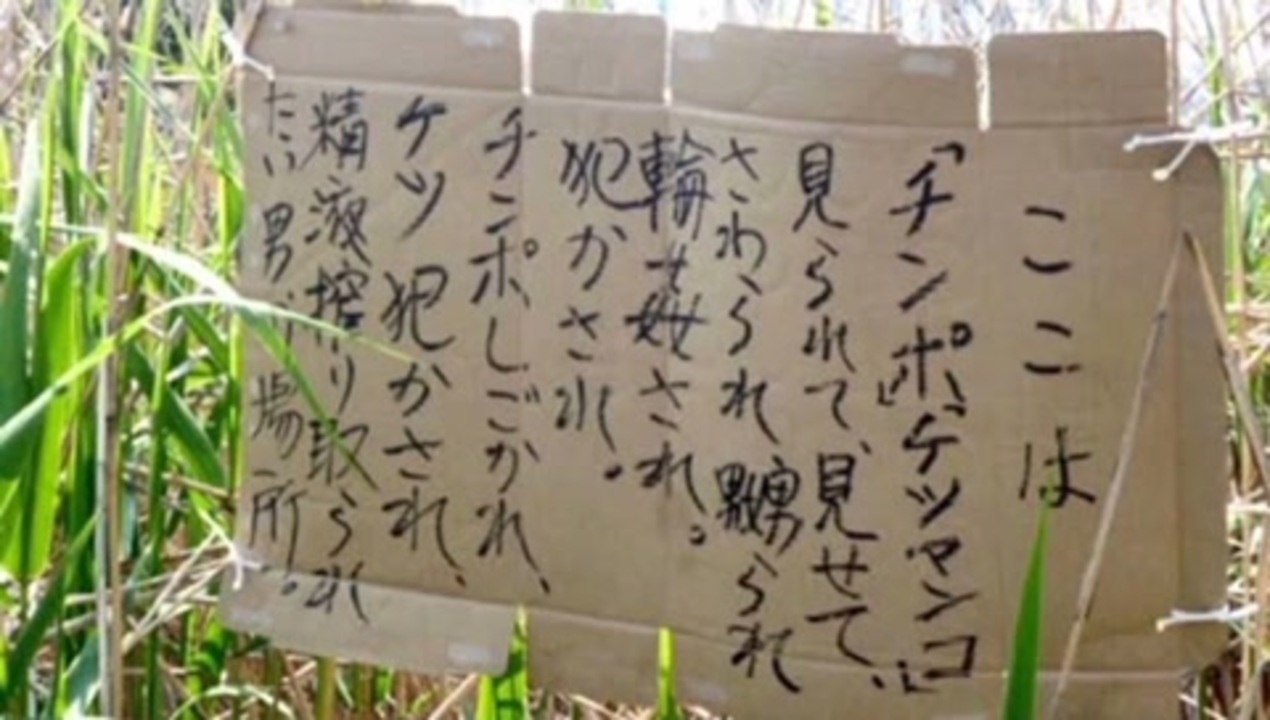 ここは
「チンポ」、「ケツマンコ」、
見られて、見せて、
さわられ嬲られ
輪姦され。
犯かされ。
チンポしごかれ、
ケツ犯かされ、
精液搾り取られ
たい男が場所。